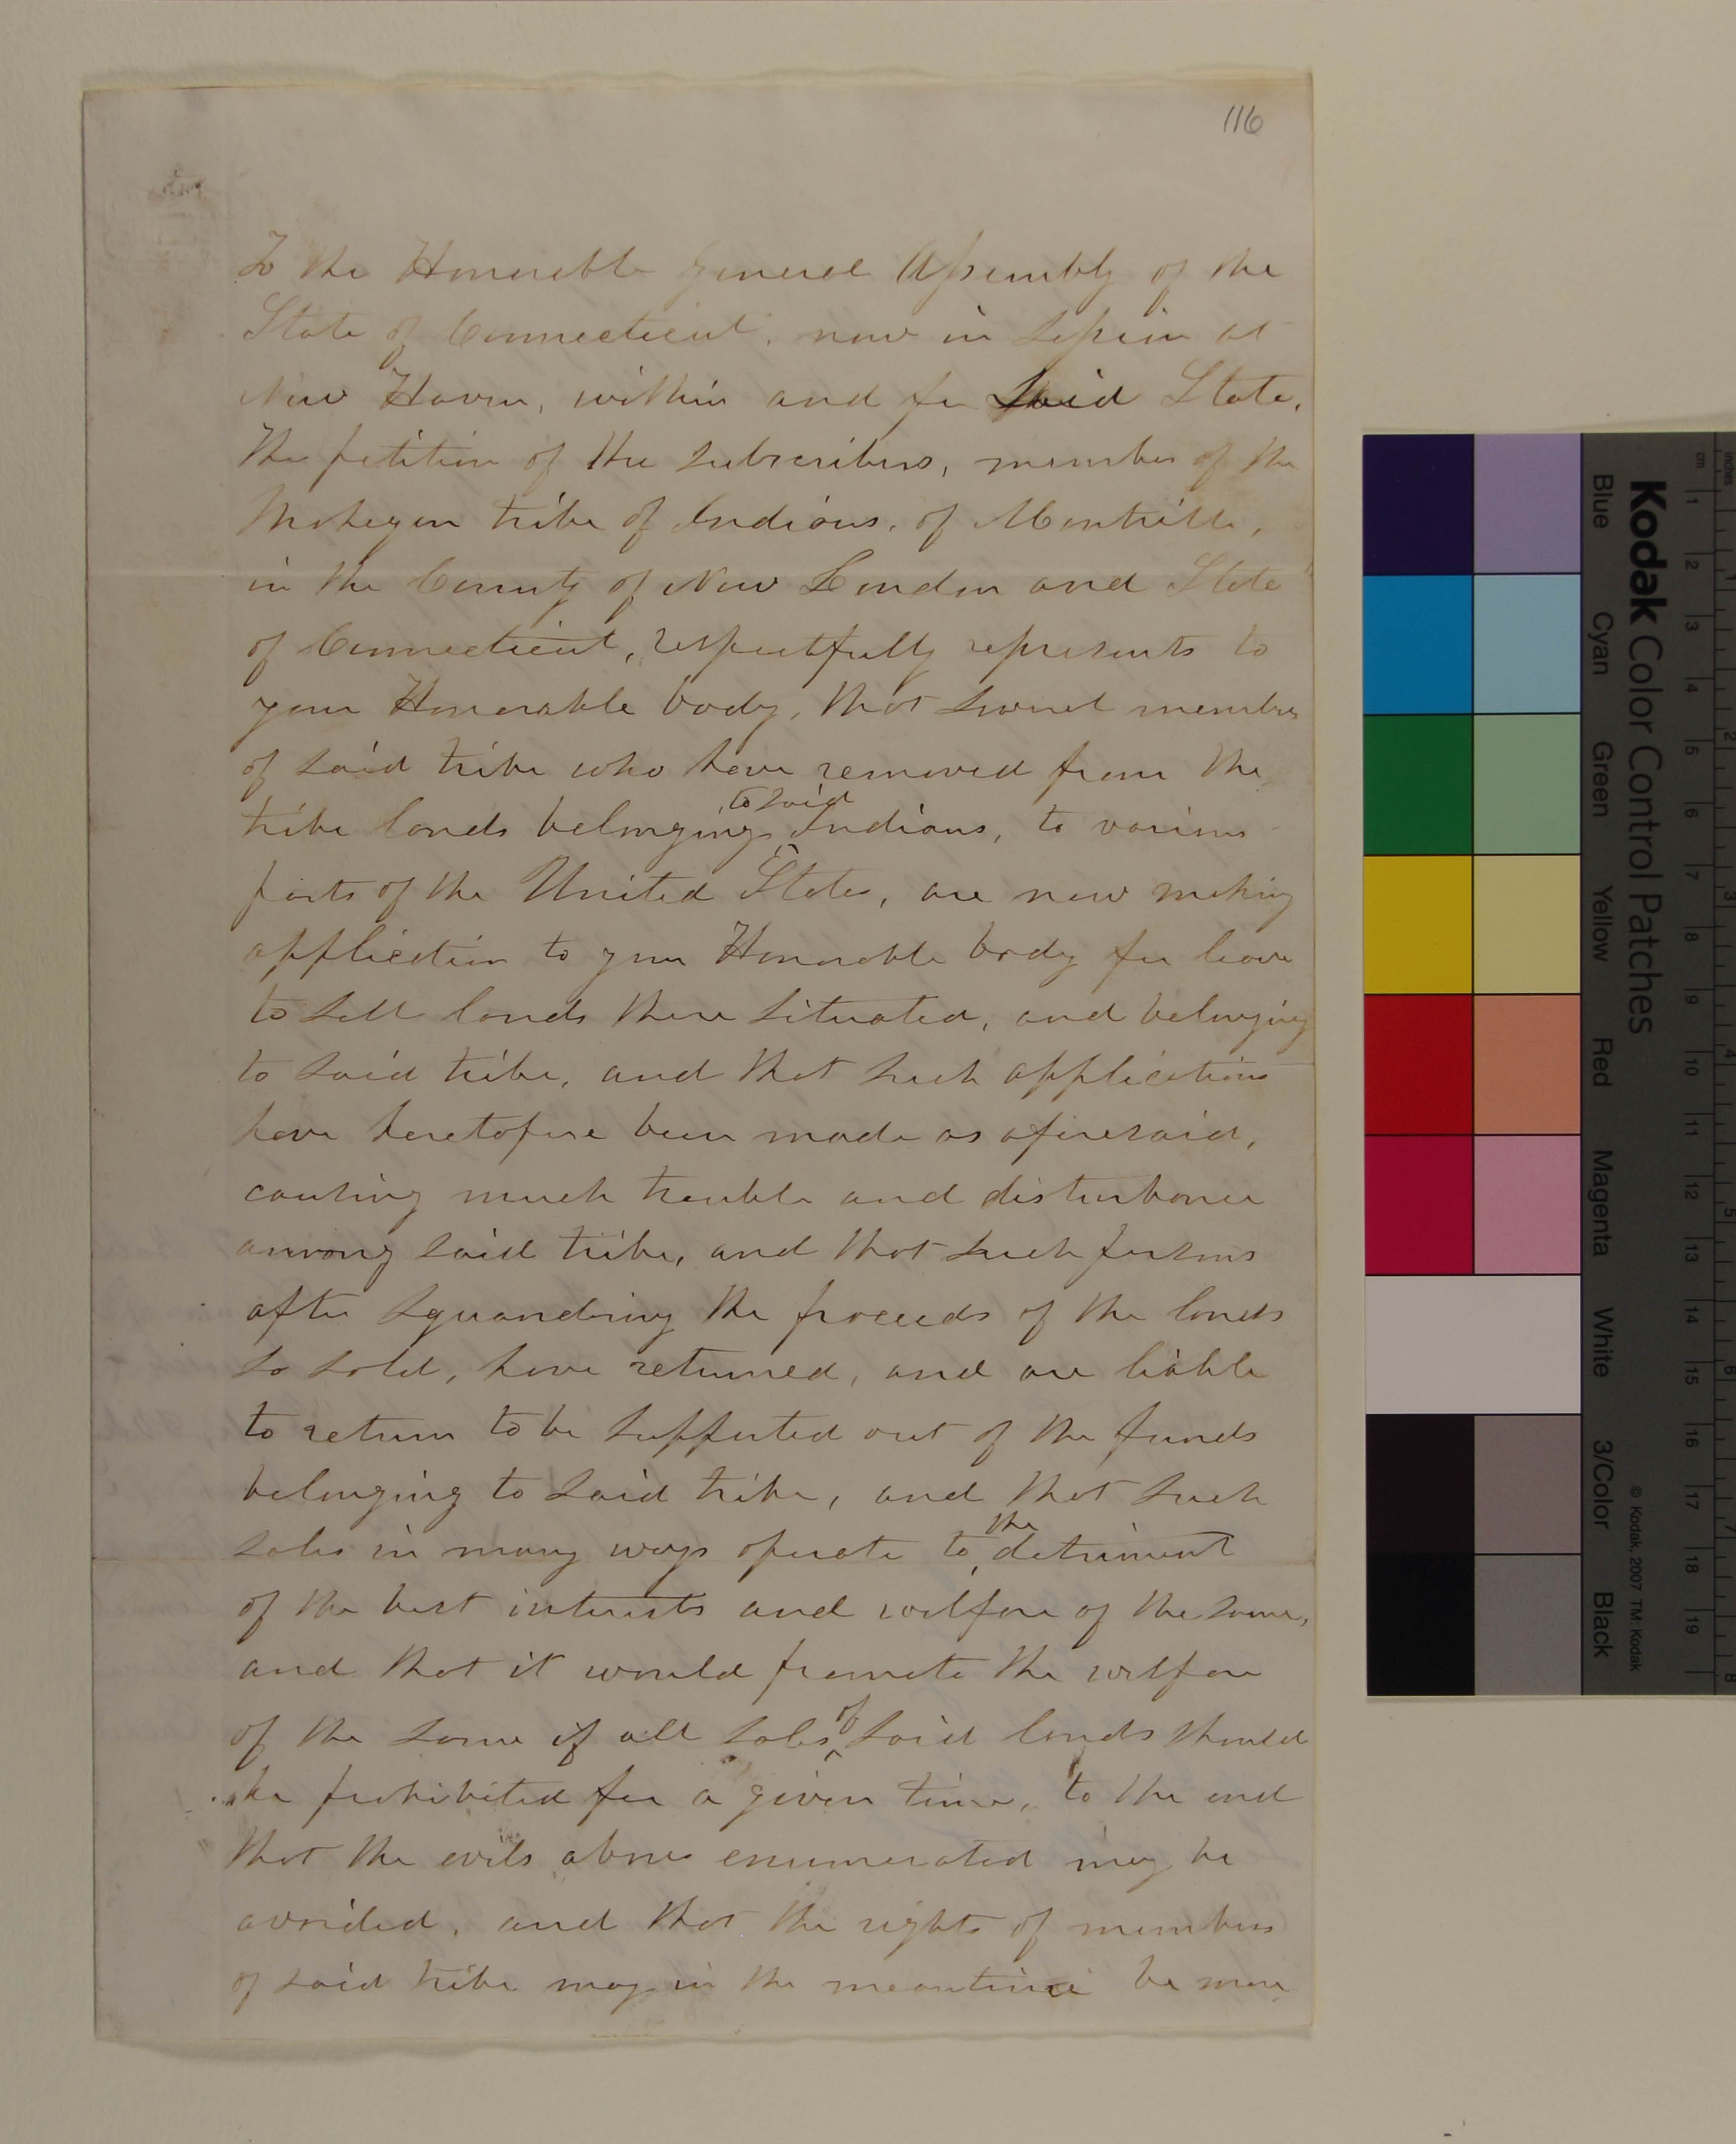 116
To the Honorable General Assembly of the
State of Connecticut, now in session at
New Haven, within and for said State.
The petition of the subscribers, member of the
Mohegan tribe of Indians, of Montville,
in the County of New London and State
of Connecticut, respectfully represents to
your Honorable body, that several members
of said tribe who have removed from the
tribe lands belonging to said Indians, to various
parts of the United States, are now making
application to your Honorable body for leave
to sell lands there situated, and belonging
to said tribe, and that such applications
have heretofore been made as aforesaid,
causing much trouble and disturbance
among said tribe, and that such persons
after squandering the proceeds of the lands
so sold, have returned, and are liable
to return to be supported out of the funds
belonging to said tribe, and that such
sales in many ways operate to the detriment
of the best interests and welfare of the same,
and that it would promote the welfare
of the same if all sales of said lands should
be prohibited for a given time, to the end
that the evils above enumerated may be
avoided, and that the rights of members
of said tribe may in the meantime be more
Kodak Color Control Patches
Blue
Cyan
Green
Yellow
Red
Magenta
White
3/Color
Black
© Kodak, 2007 TM: Kodak
cm 1 2 3 4 5 6 7 8 9 10 11 12 13 14 15 16 17 18 19
inches 1 2 3 4 5 6 7 8